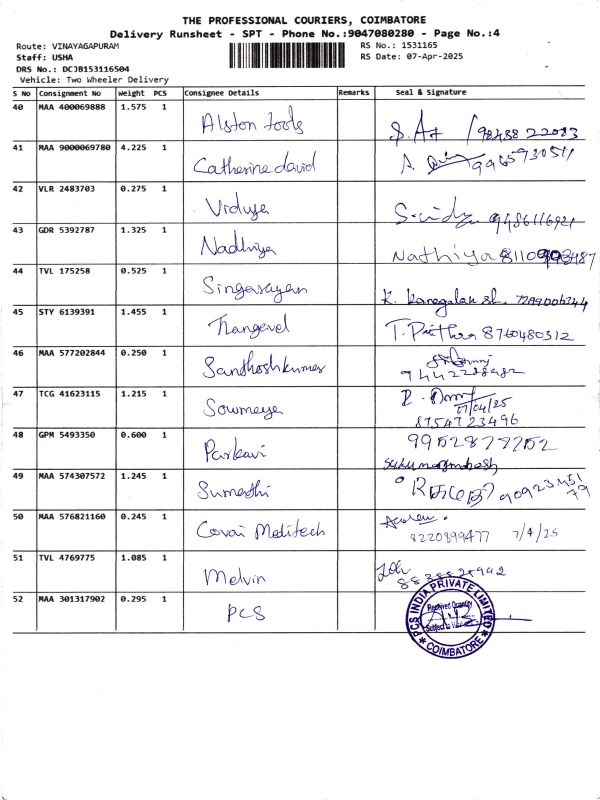 THE PROFESSIONAL COURIERS, COIMBATORE
Delivery Runsheet - SPT - Phone No.:9047080280 - Page No.:4
Route: VINAYAGAPURAM RS No.: 1531165
Staff: USHA RS Date: 07-Apr-2025
DRS No.: DCJB153116504
Vehicle: Two Wheeler Delivery
S No Consignment No Weight PCS Consignee Details Remarks Seal & Signature
40 MAA 400069888 1.575 1 Alston tools
41 MAA 9000069780 4.225 1 Catherine david
42 VLR 2483703 0.275 1 Vidhya
43 GDR 5392787 1.325 1 Nadhiya Nathiya
44 TVL 175258 0.525 1 Singarayan
45 STY 6139391 1.455 1 Thangavel 8760480312
46 MAA 577202844 0.250 1 Santhoshkumar
47 TCG 41623115 1.215 1 Sowmeya
07/04/25
8754723496
48 GPM 5493350 0.600 1 Parkavi
49 MAA 574307572 1.245 1 Sumathi
50 MAA 576821160 0.245 1 Covai Meditech
8220399477 7/4/25
51 TVL 4769775 1.085 1 Melvin
52 MAA 301317902 0.295 1 PCS
PCS INDIA PRIVATE LIMITED
Received Quantity
Subject to
COIMBATORE